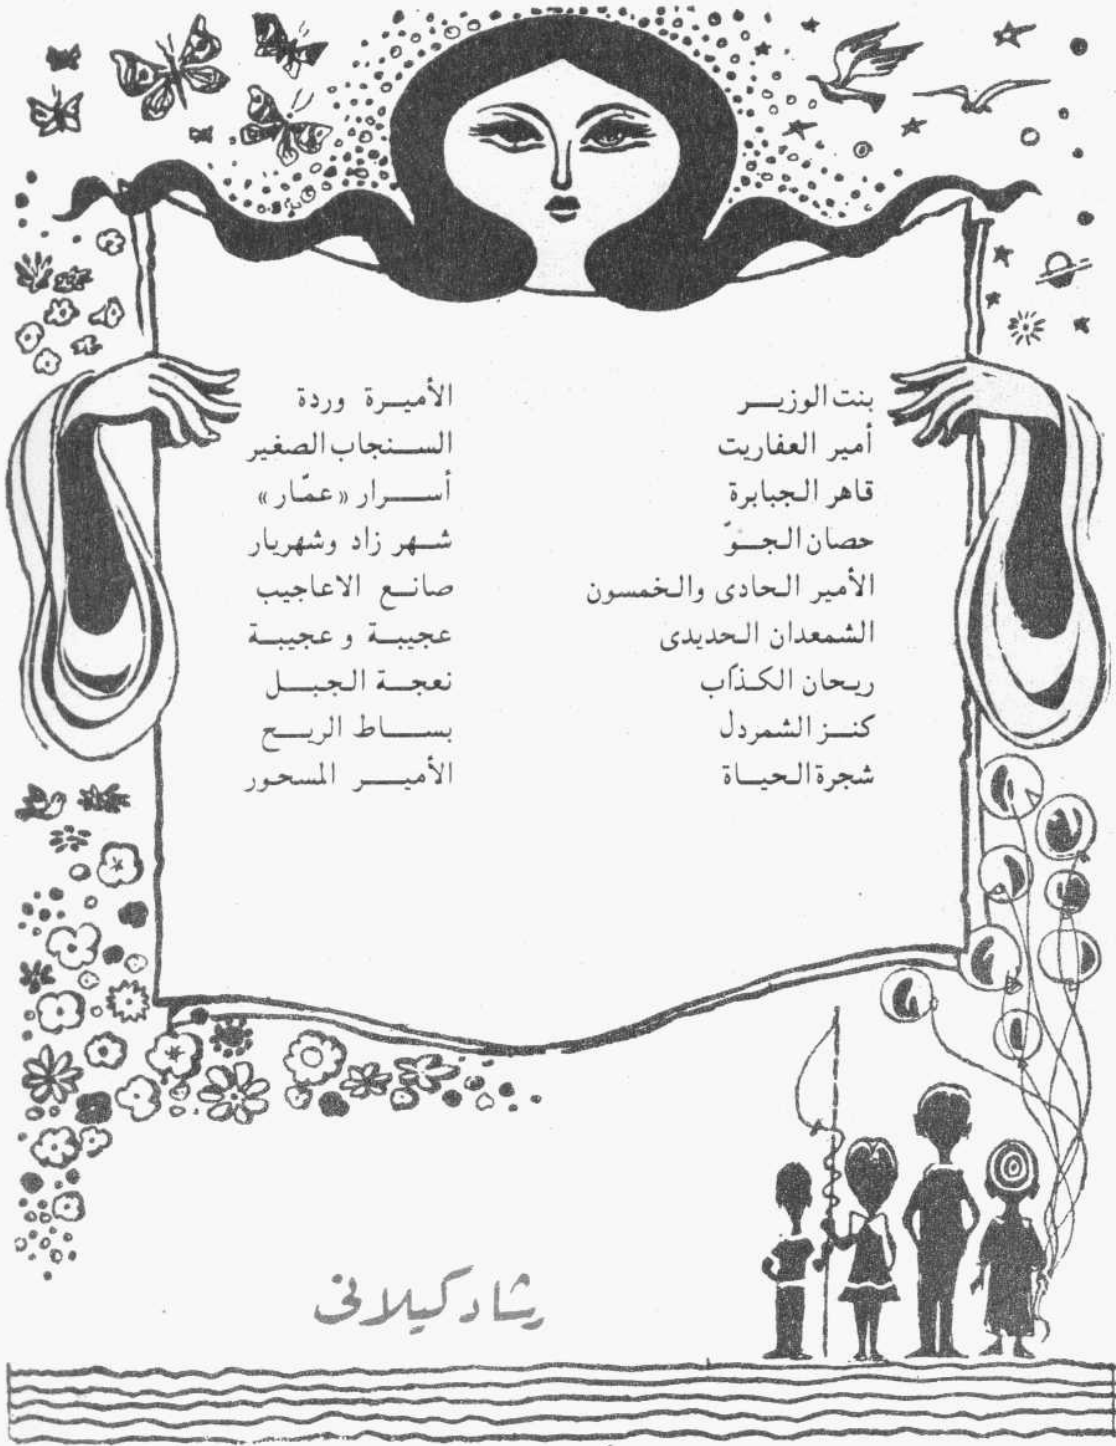 بنت الوزير
أمير العفاريت
قاهر الجبابرة
حصان الجوّ
الأمير الحادى والخمسون
الشمعدان الحديدى
ريحان الكذاب
كنز الشمردل
شجرة الحياة
الأميرة وردة
السنجاب الصغير
أسرار «عمّار»
شهر زاد وشهريار
صانع الاعاجيب
عجيبة و عجيبة
نعجة الجبل
بساط الريح
الأمير المسحور
رشاد كيلانى